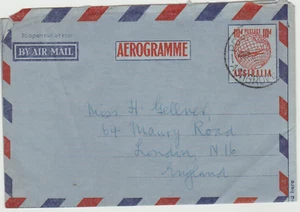 BY AIR MAIL
AEROGRAMME
10d POSTAGE 10d
AUSTRALIA
Miss H Gellner,
64 Maury Road
London, N16
England